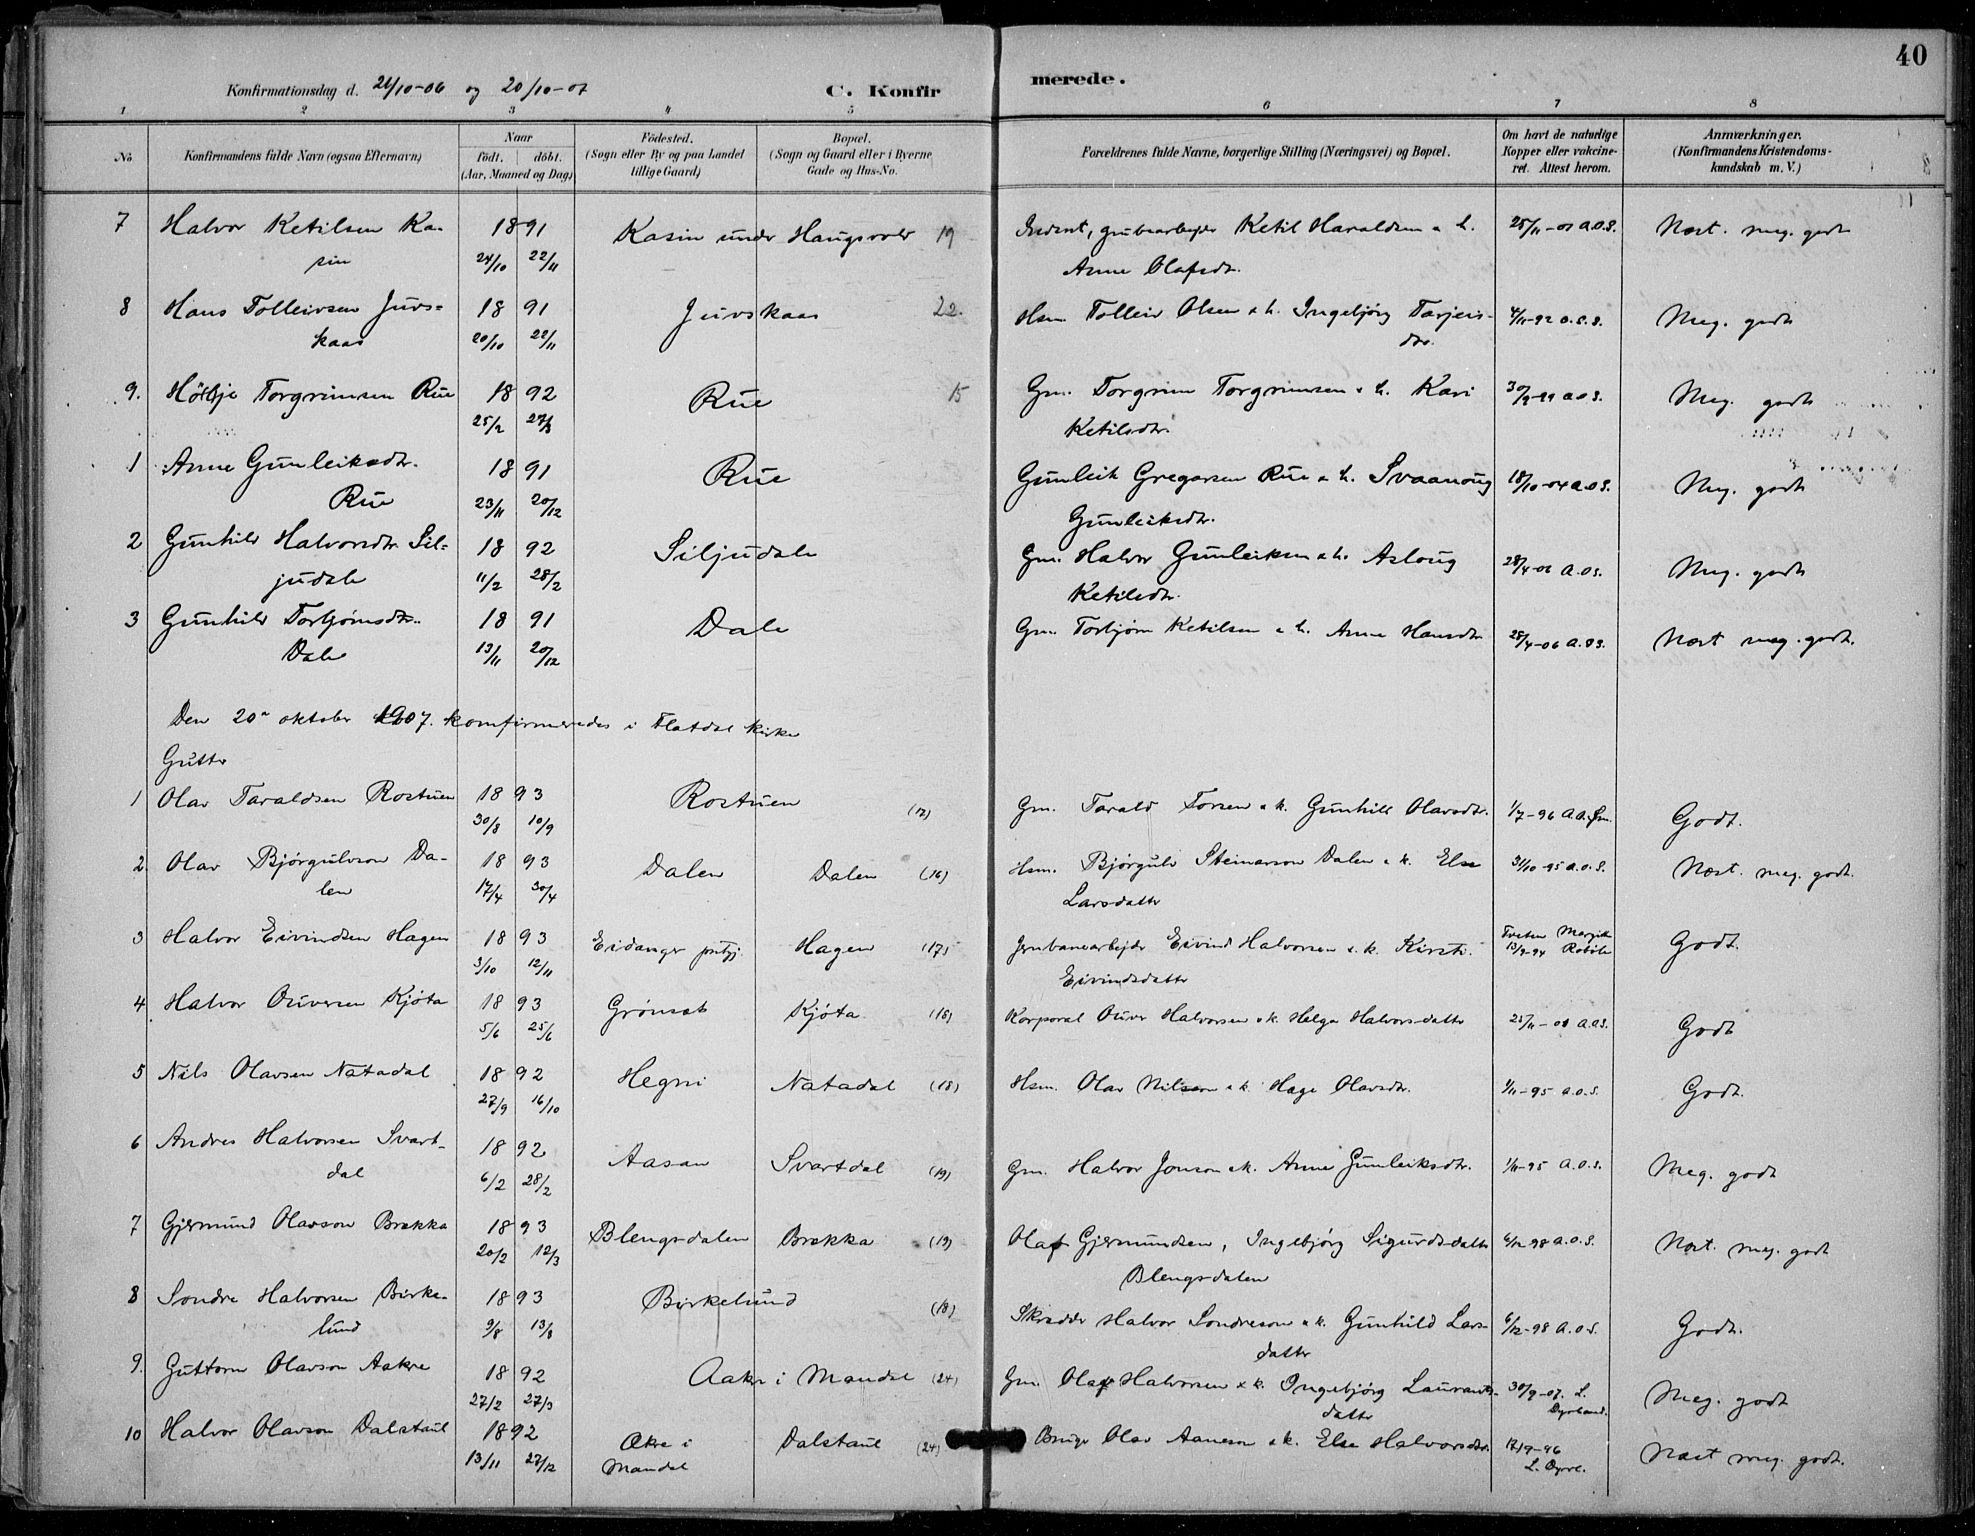 40
Konfirmationsdag d. 21/10-06 og 20/10-07 C. Konfirmerede.
1 2 3 4 5 6 7 8
No Konfirmandens fulde Navn (ogsaa Efternavn) Naar födt. döbt. (Aar, Maaned og Dag) Födested. (Sogn eller By og paa Landet tillige Gaard) Bopæl. (Sogn og Gaard eller i Byerne Gade og Hus-No. Forældrenes fulde Navne, borgerlige Stilling (Næringsvei) og Bopæl. Om havt de naturlige Kopper eller vakcineret. Attest herom. Anmærkninger. (Konfirmandens Kristendomskundskab m. V.)
7 Halvor Ketilsen Ka- 1891 Kasin under Haugsvoler 19 Inderst, grubearbejder Ketil Haraldsen & h. 25/11-01 A.O.S. Næst. meg. godt
sin 24/10 22/11 Anne Olafsdtr.
8 Hans Tolleivsen Juvs- 1891 Juvskaas 22. Hsm. Tolleiv Olsen & h. Ingebjørg Tarjeis- 4/11-92 O.S.S. Meg. godt
kaas 20/10 22/11 dtr.
9. Hölje Torgrimsen Rue 1892 Rue 15 Gm. Torgrim Torgrimsen & h. Kari 30/9-99 A.O.S. Meg. godt
25/2 27/3 Ketilsdtr.
1 Anne Gunleiksdtr. 1891 Rue Gunleik Gregarsen Rue & h. Svaanaug 18/10-04 A.O.S. Meg. godt
Rue 23/11 20/12 Gunleiksdtr.
2 Gunhild Halvorsdtr. Sil- 1892 Siljudale Gm. Halvor Gunleiksen & h. Aslaug 28/4-06 A.O.S. Meg. godt
judale 11/2 28/2 Ketilsdtr.
3 Gunhild Torbjørnsdtr. 1891 Dale Gm. Torbjørn Ketilsen & h. Anne Hansdtr. 28/4-06 A.O.S. Næst meg. godt.
Dale 13/11 20/12
Den 20de oktober 1907. konfirmeredes i Flatdal kirke
Gutter
1 Olav Taraldsen Rostuen 1893 Rostuen (12) Gm. Tarald Torsen & k. Gunhild Olavsdtr. 1/7-96 A.A. Godt.
30/8 10/9
2 Olav Bjørgulvson Da- 1893 Dalen Dalen (16) Hsm. Bjørgulv Steinarson Dalen & k. Else 31/10-95 A.O.S. Næst. meg. godt.
len 17/4 30/4 Larsdatter
3 Halvor Eivindsen Hagen 1893 Eidanger prstgj. Hagen (17) Jernbanearbejder Eivind Halvorsen & k. Kirsti Tveten Margith Godt.
3/10 12/11 Eivindsdatter 13/9-94
4 Halvor Ouversen Kjöta 1893 Grönset Kjöta (16) Korporal Ouver Halvorsen & k. Helga Halvorsdatter 25/11-01 A.O.S. Godt
5/6 25/6
5 Nils Olavsen Natadal 1892 Hegni Natadal (18) Hsm. Olav Nilsson & k. Hæge Olavsdtr. 1/11-95 A.O.S. Godt.
27/9 16/10
6 Andres Halvorsen Svart- 1892 Aasan Svartdal (19) Gm. Halvor Jonson & k. Anne Gunleiksdtr. 1/11-95 A.O.S. Meg. godt
dal 6/2 28/2
7 Gjermund Olavson Brekka 1893 Blengsdalen Brekka (19) Olaf Gjermundsen, Ingebjørg Sigurdsdatter 6/12 98 A.O.S. Næst. meg. godt
20/2 12/3 Blengsdalen
8 Sondre Halvorsen Birke- 1893 Birkelund (18) Skrædder Halvor Sondreson & k. Gunhild Lars- 6/12-98 A.O.S. Godt.
lund 9/8 13/8 datter
9. Guttorm Olavson Aakre 1892 Aakre i Mandal (24) Gm. Olaf Halvorsen & k. Ingebjørg Laurants- 30/9-07. L. Meg. godt
27/2 27/3 datter Dyrland.
10 Halvor Olavson Dalstaul 1892 Økre i Dalstaul (24) Bruger Olav Aaneson & k. Else Halvorsdtr. 17/9-96 Næst meg. godt.
13/11 27/12 Mandal L. Dyrl.